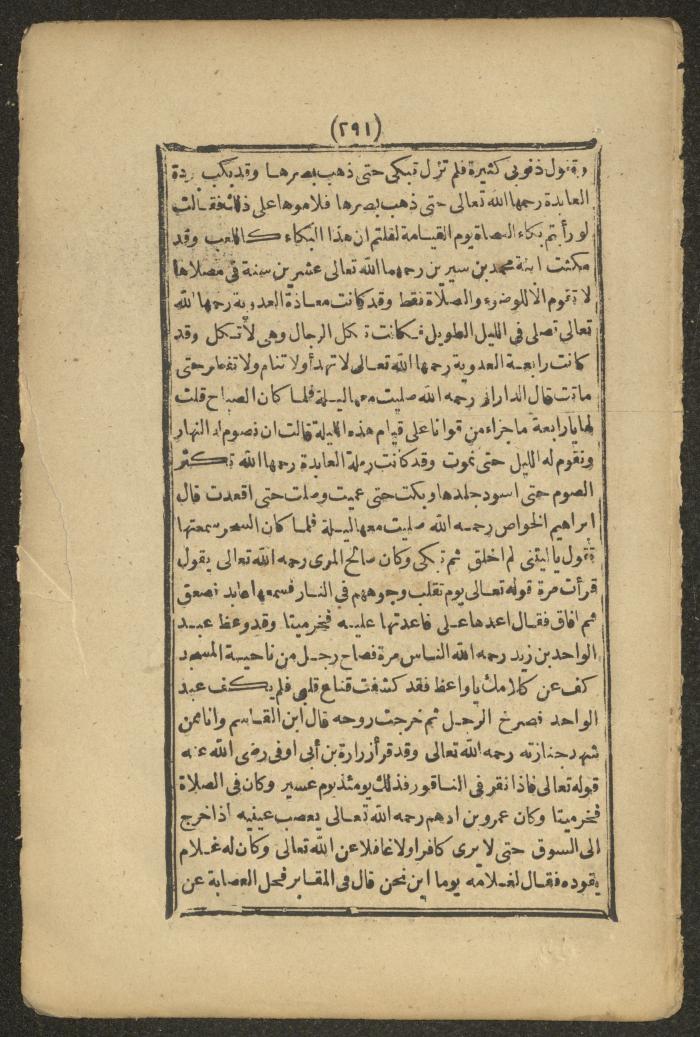 (٢٩١)
وتقول ذنوبى كثيرة فلم تزل تبكى حتى ذهب بصرها وقد بكت بردة
العابدة رحمها الله تعالى حتى ذهب بصرها فلاموها على ذلك فقالت
لو رأيتم بكاء العصاة يوم القيامة لقلتم ان هذا البكاء كاللعب وقد
مكثت ابنة محمد بن سيرين رحمهما الله تعالى عشرين سنة فى مصلاها
لا تقوم الا للوضوء والصلاة فقط وقد كانت معاذة العدوية رحمها الله
تعالى تصلى فى الليل الطويل فكانت تكل الرجال وهى لا تكل وقد
كانت رابعة العدوية رحمها الله تعالى لا تهدأ ولا تنام ولا تفطر حتى
ماتت قال الدارانى رحمه الله صليت معها ليلة فلما كان الصباح قلت
لها يا رابعة ما جزاء من قوانا على قيام هذه الليلة قالت ان نصوم له النهار
ونقوم له الليل حتى نموت وقد كانت رملة العابدة رحمها الله تكثر
الصوم حتى اسود جلدها وبكت حتى عميت وصلت حتى اقعدت قال
ابراهيم الخواص رحمه الله صليت معها ليلة فلما كان السحر سمعتها
تقول يا ليتنى لم اخلق ثم تبكى وكان صالح المرى رحمه الله تعالى يقول
قرأت مرة قوله تعالى يوم تقلب وجوههم فى النار فسمعها عابد فصعق
ثم افاق فقال اعدها على فاعدتها عليه فخر ميتا وقد وعظ عبد
الواحد بن زيد رحمه الله الناس مرة فصاح رجل من ناحية المسجد
كف عن كلامك يا واعظ فقد كشفت قناع قلبى فلم يكف عبد
الواحد فصرخ الرجل ثم خرجت روحه قال ابن القاسم وانا ممن
شهد جنازته رحمه الله تعالى وقد قرأ زرارة بن أبى اوفى رضى الله عنه
قوله تعالى فاذا نقر فى الناقور فذلك يومئذ يوم عسير وكان فى الصلاة
فخر ميتا وكان عمرو بن ادهم رحمه الله تعالى يعصب عينيه اذا خرج
الى السوق حتى لا يرى كافرا ولا غافلا عن الله تعالى وكان له غلام
يقوده فقال لغلامه يوما اين نحن قال فى المقابر فحل العصابة عن